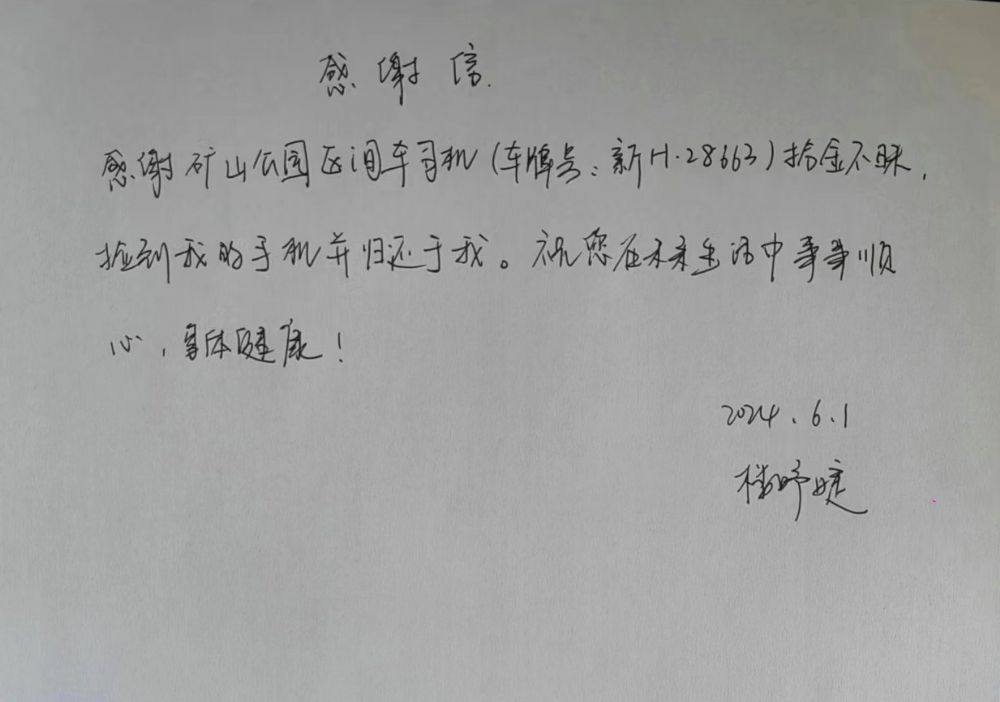 感谢信.
感谢矿山公园区间车司机(车牌号:新H·28663)拾金不昧,
捡到我的手机并归还于我。祝您在未来生活中事事顺
心,身体健康!
2024.6.1
楼婕